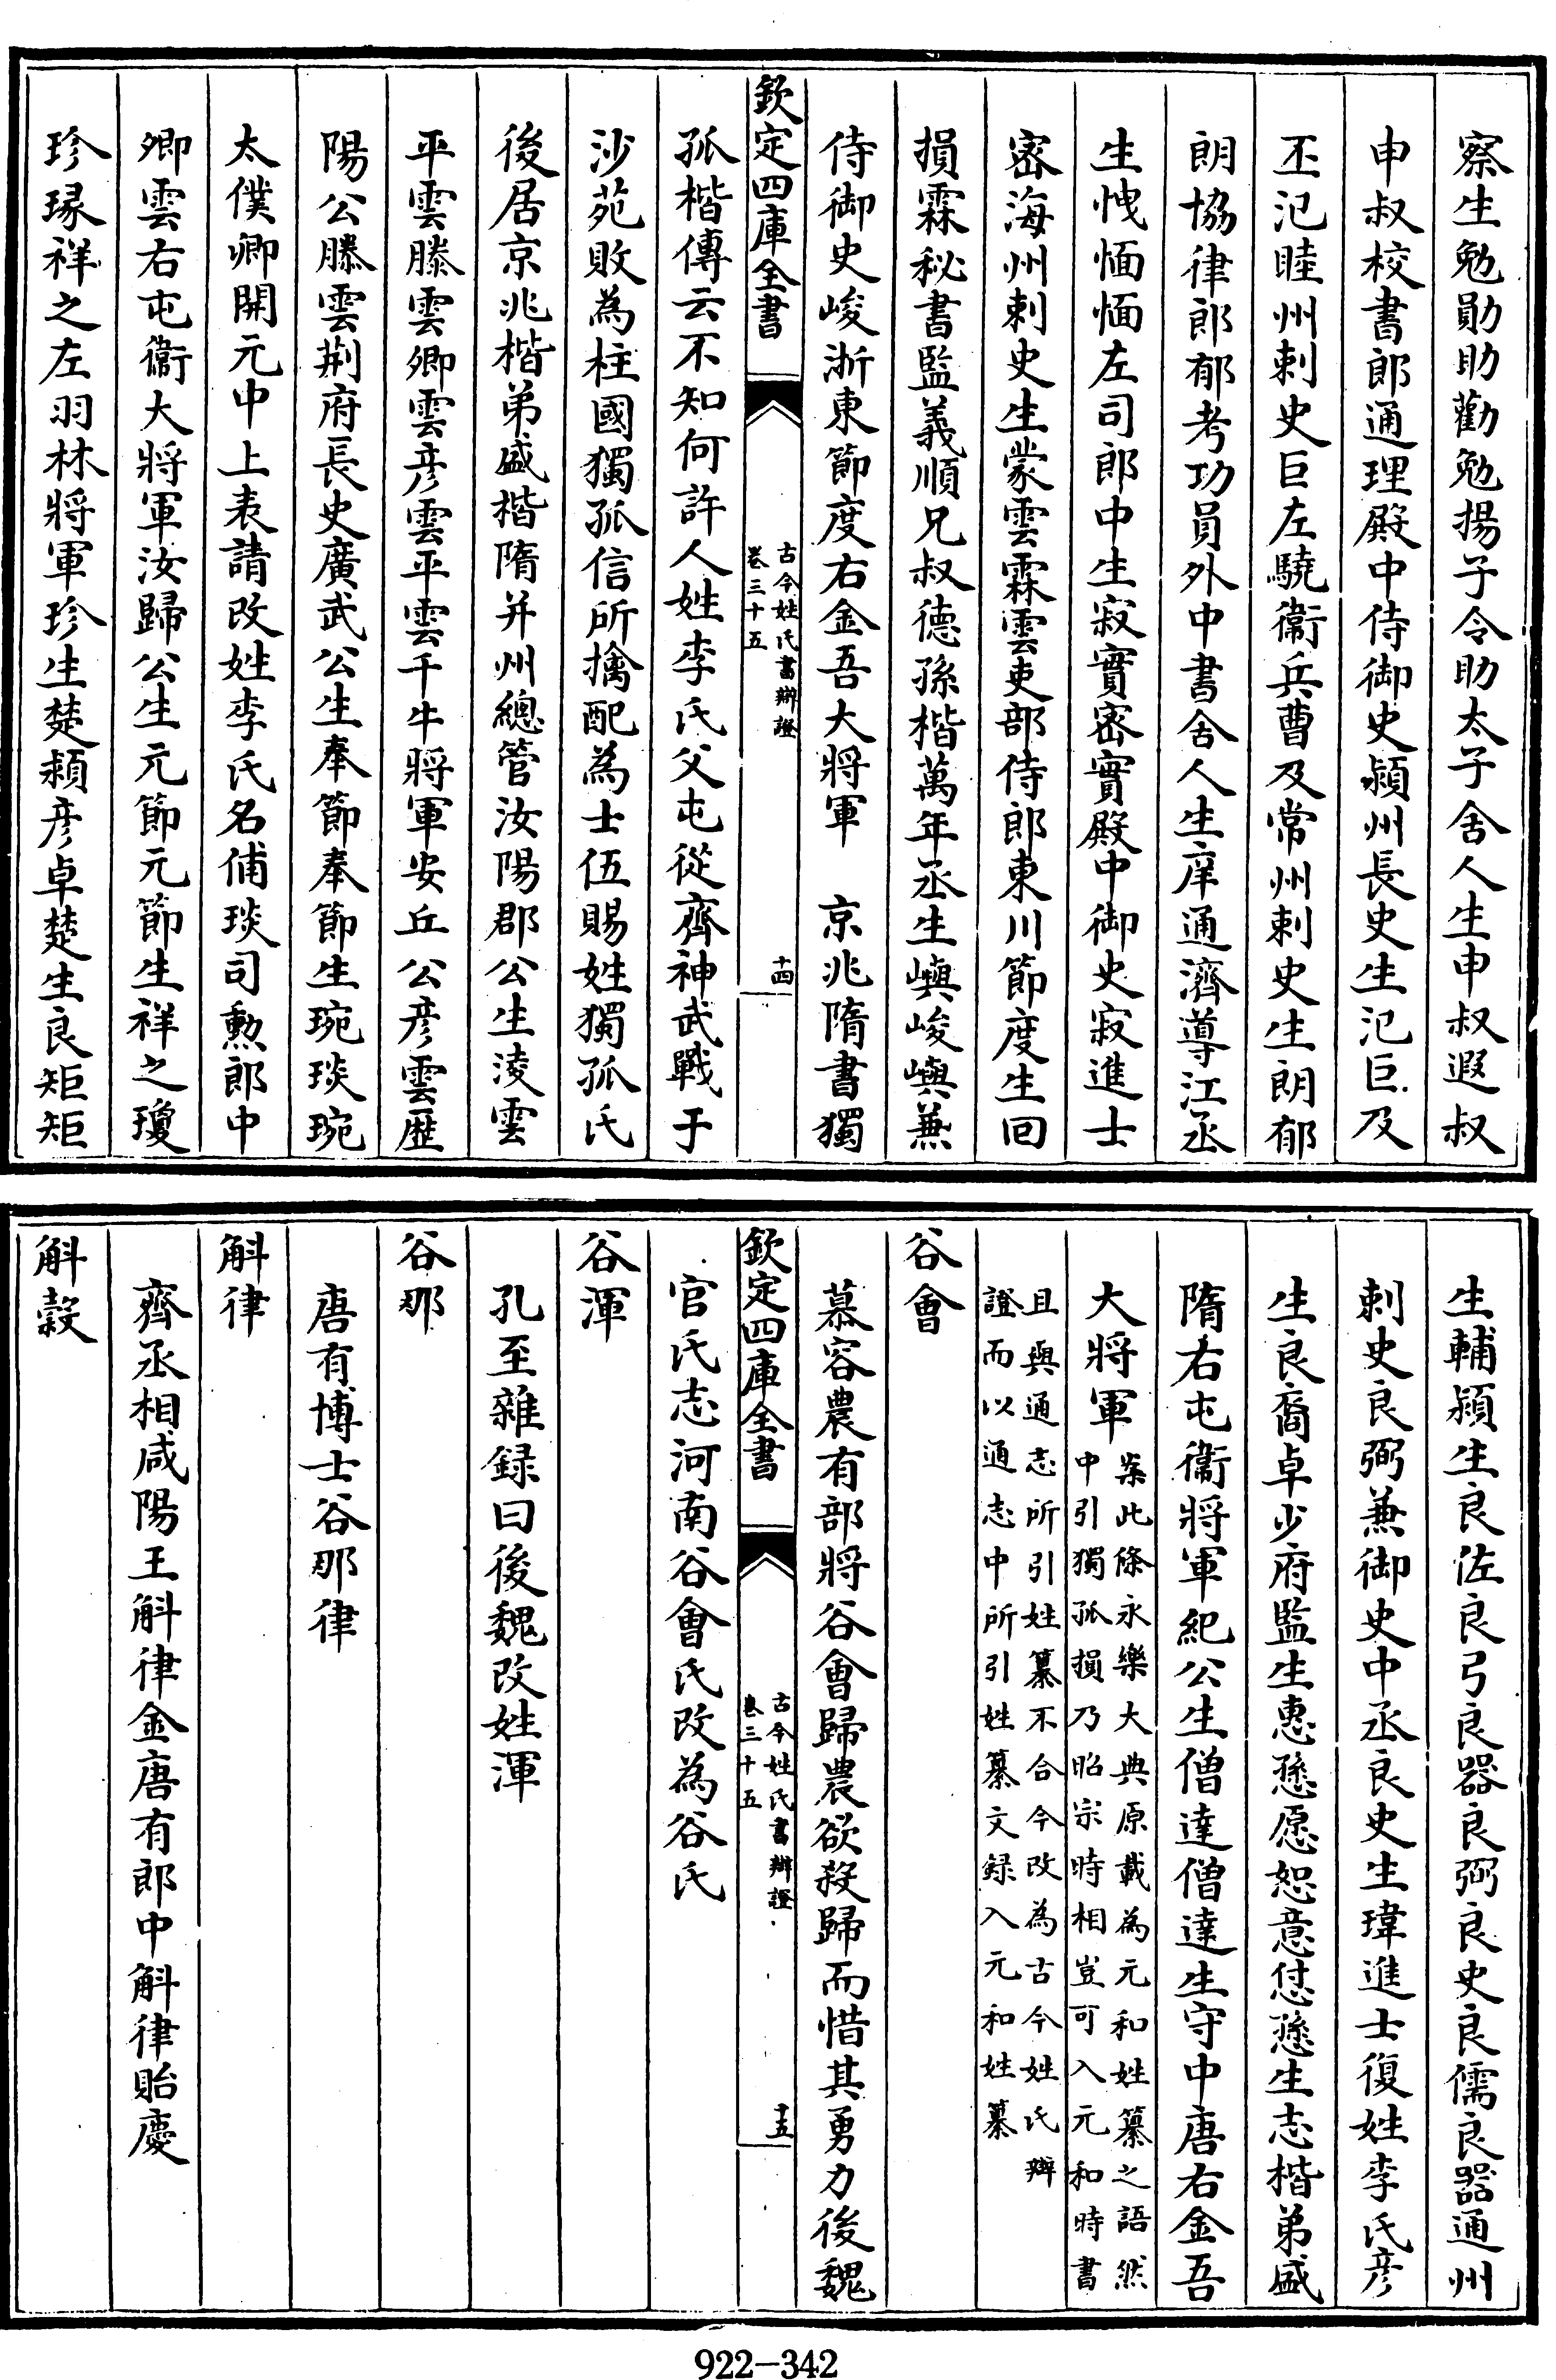 察生勉勛助勸勉揚子令助太子舍人生申叔遐叔
申叔校書郎通理殿中侍御史潁州長史生氾巨及
丕氾睦州刺史巨左驍衞兵曹及常州刺史生朗郁
朗協律郎郁考功員外中書舍人生庠通濟導江丞
生愧愐愐左司郎中生寂實密實殿中御史寂進士
密海州刺史生蒙雲霖雲吏部侍郎東川節度生回
損霖秘書監義順兄叔德孫楷萬年丞生嶼峻嶼兼
侍御史峻浙東節度右金吾大將軍　京兆隋書獨
欽定四庫全書
古今姓氏書辯證
卷三十五
十四
孤楷傳云不知何許人姓李氏父屯從齊神武戰于
沙苑敗為柱國獨孤信所擒配為士伍賜姓獨孤氏
後居京兆楷弟盛楷隋并州總管汝陽郡公生淩雲
平雲滕雲卿雲彦雲平雲千牛將軍安丘公彦雲歴
陽公滕雲荆府長史廣武公生奉節奉節生琬琰琬
太僕卿開元中上表請改姓李氏名俌琰司勲郎中
卿雲右屯衞大將軍汝歸公生元節元節生祥之瓊
珍瑑祥之左羽林將軍珍生楚頴彦卓楚生良矩矩
生輔潁生良佐良弓良器良弼良史良儒良器通州
刺史良弼兼御史中丞良史生瑋進士復姓李氏彦
生良裔卓少府監生惠愻愿恕意愆愻生志楷弟盛
隋右屯衞將軍紀公生僧達僧達生守中唐右金吾
大將軍
案此條永樂大典原載為元和姓纂之語然
中引獨孤損乃昭宗時相豈可入元和時書
且與通志所引姓纂不合今改為古今姓氏辯
證而以通志中所引姓纂文録入元和姓纂
谷會
慕容農有部將谷會歸農欲殺歸而惜其勇力後魏
欽定四庫全書
古今姓氏書辯證
卷三十五
十五
官氏志河南谷會氏改為谷氏
谷渾
孔至雜録曰後魏改姓渾
谷那
唐有博士谷那律
斛律
齊丞相咸陽王斛律金唐有郎中斛律貽慶
斛穀
922-342